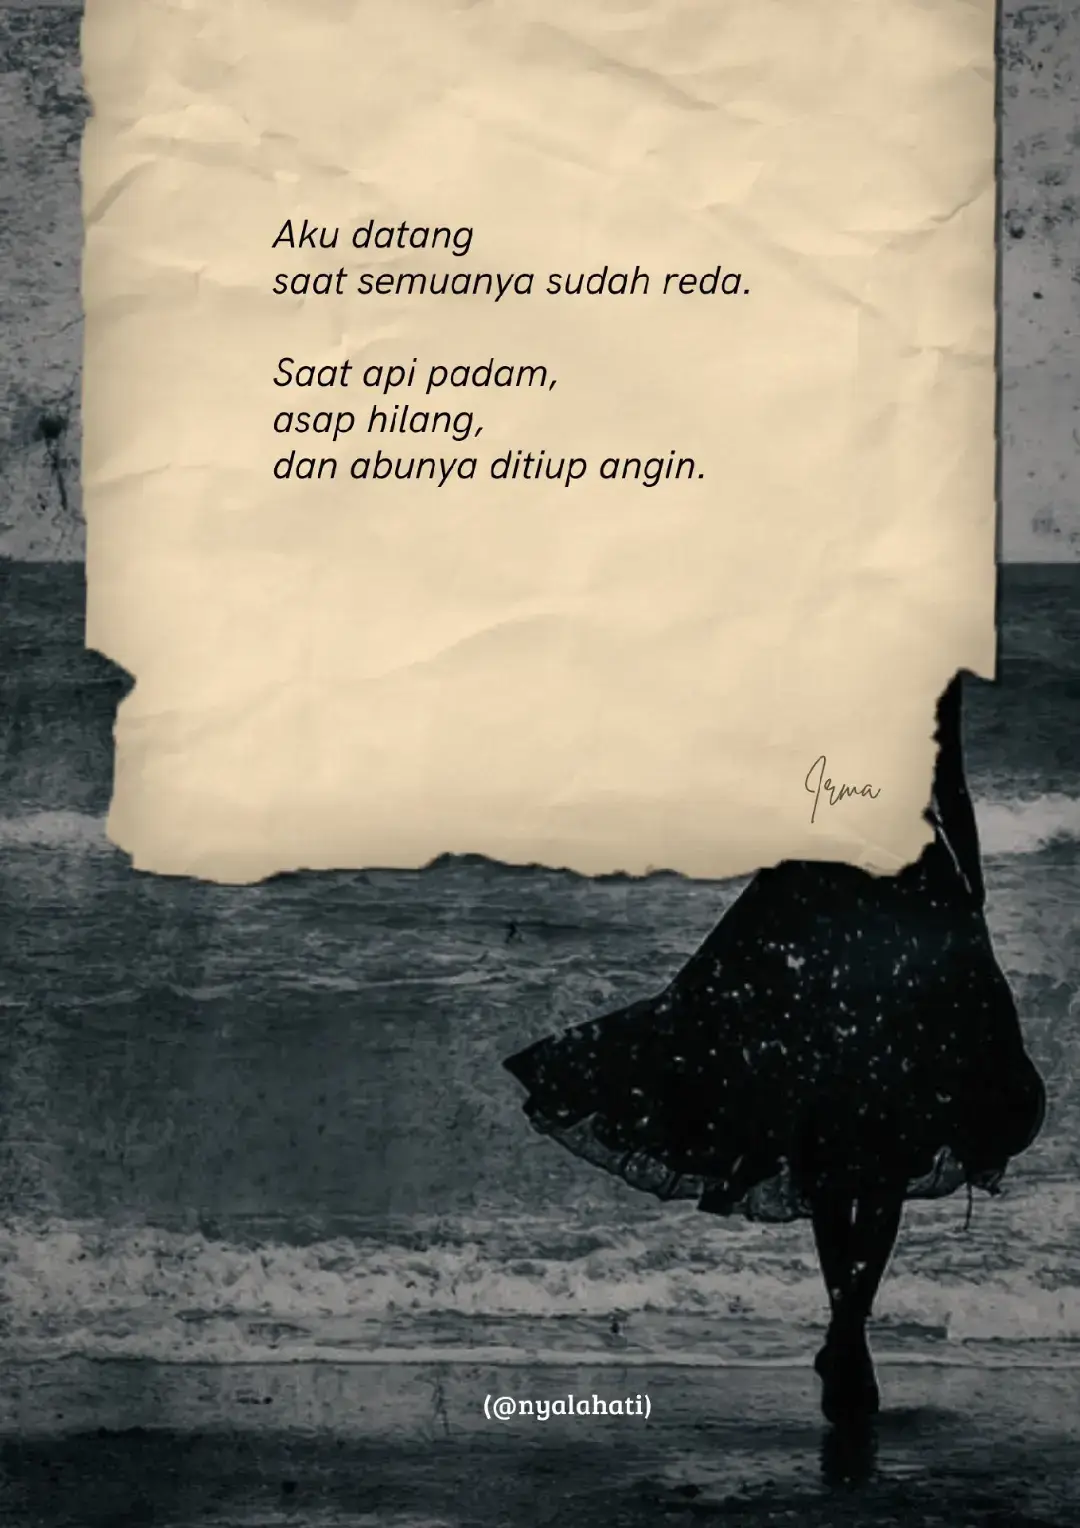 Aku datang
saat semuanya sudah reda.
Saat api padam,
asap hilang,
dan abunya ditiup angin.
Irma
(@nyalahati)